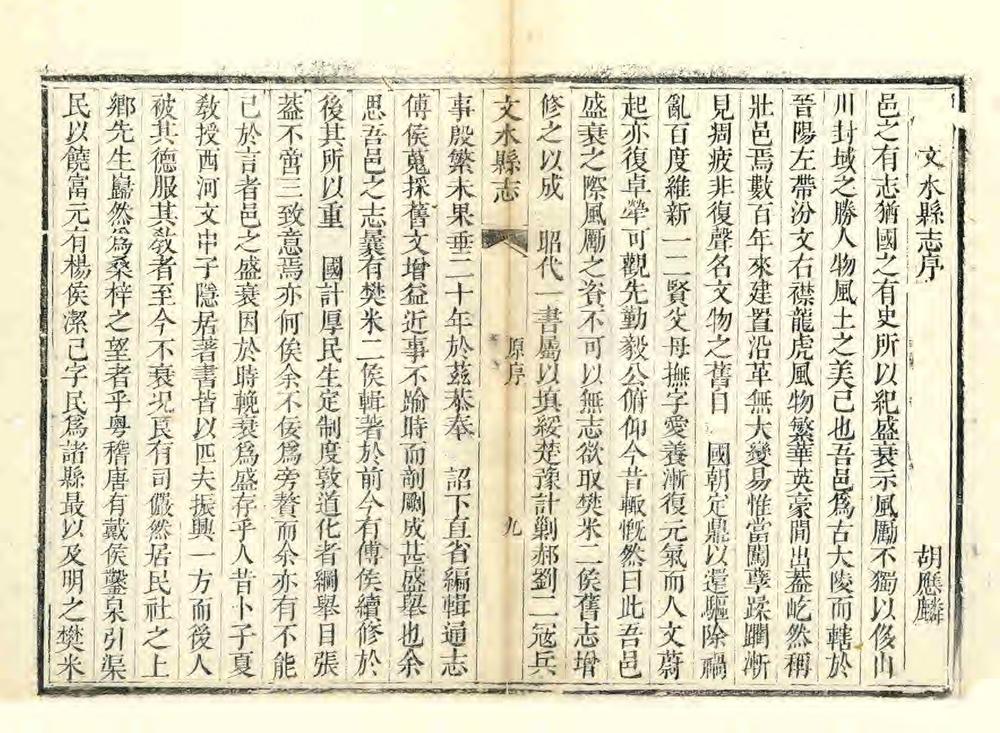 文水縣志序
胡應麟
邑之有志猶國之有史所以紀盛衰示風勵不獨以侈山
川封域之勝人物風土之美已也吾邑爲古大陵而轄於
晉陽左帶汾文右襟龍虎風物繁華英豪間出蓋屹然稱
壯邑焉數百年來建置沿革無大變易惟當闖孽蹂躪漸
見凋疲非復聲名文物之舊日 國朝定鼎以還驅除禍
亂百度維新一二賢父母撫字愛養漸復元氣而人文蔚
起亦復卓犖可觀先勤毅公俯仰今昔輙慨然曰此吾邑
盛衰之際風勵之資不可以無志欲取樊米二侯舊志增
修之以成 昭代一書屬以填綏楚豫計剿郝劉二寇兵
文水縣志
原序
九
事殷繁未果垂二十年於茲恭奉 詔下直省編輯通志
傅侯蒐採舊文增益近事不踰時而剞劂成甚盛舉也余
思吾邑之志曩有樊米二侯輯著於前今有傅侯續修於
後其所以重 國計厚民生定制度敦道化者綱舉目張
蓋不啻三致意焉亦何俟余不佞爲旁贅而余亦有不能
已於言者邑之盛衰因於時輓衰爲盛存乎人昔卜子夏
敎授西河文中子隱居著書皆以匹夫振興一方而後人
被其德服其敎者至今不衰况良有司儼然居民社之上
鄉先生巋然爲桑梓之望者乎粤稽唐有戴侯鑿泉引渠
民以饒富元有楊侯潔己字民爲諸縣最以及明之樊米